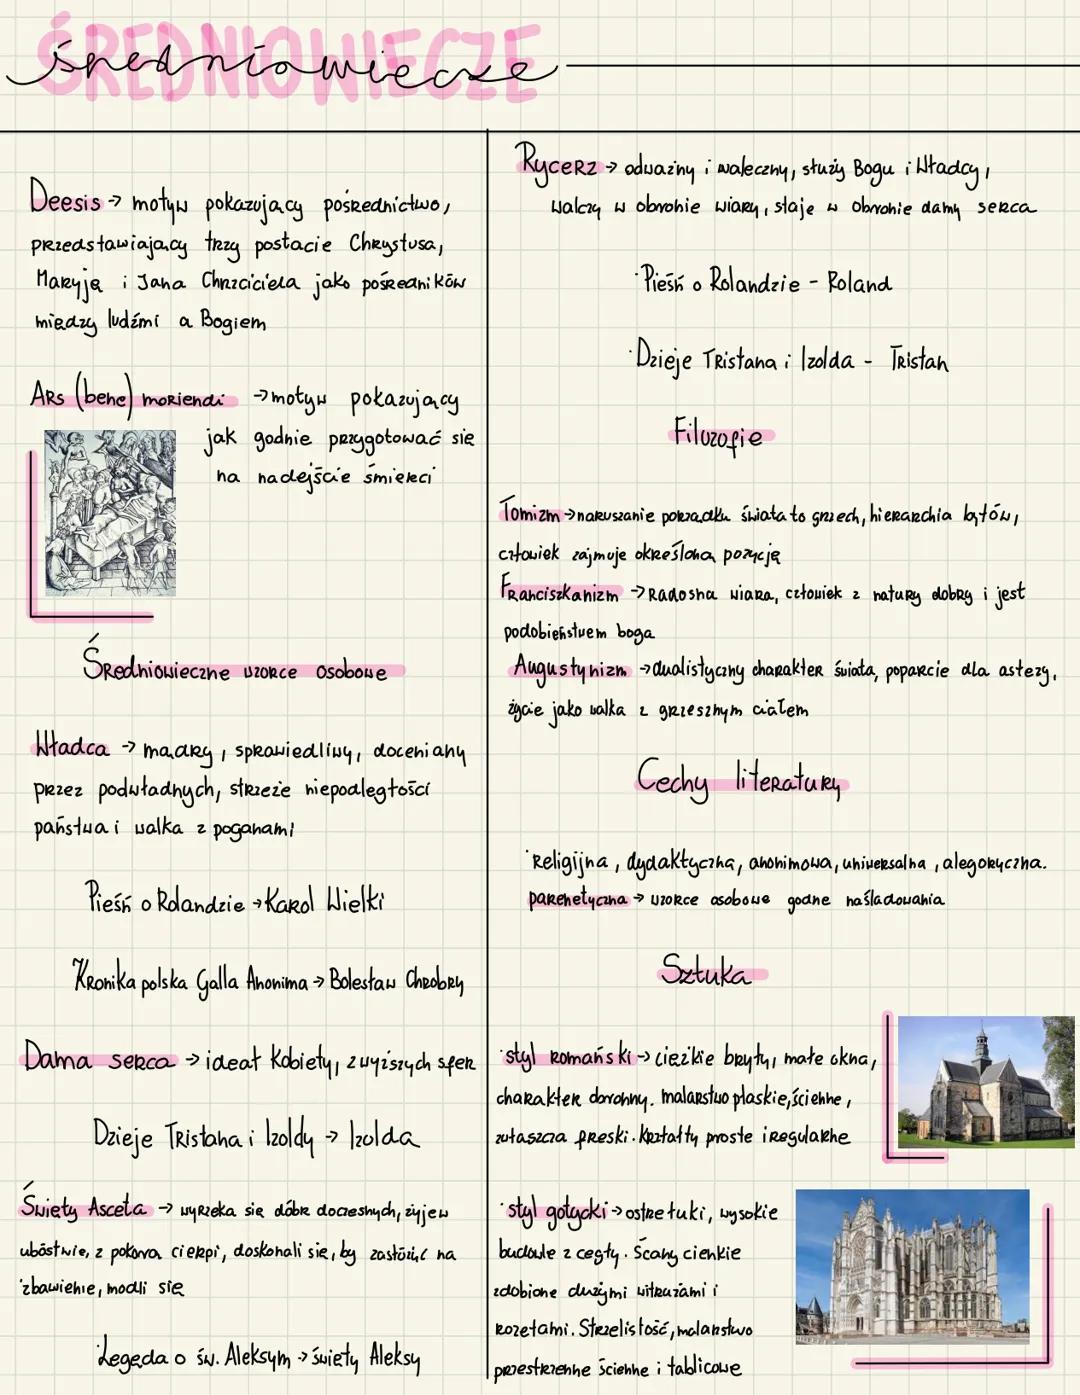 ŚREDNIOWIECZE
średniowiecze
Deesis → motyw pokazujący pośrednictwo,
przedstawiający trzy postacie Chrystusa,
Maryję i Jana Chrzciciela jako pośredników
między ludźmi a Bogiem
Ars (bene) moriendi → motyw pokazujący
jak godnie przygotować się
na nadejście śmierci
Średniowieczne wzorce osobowe
Władca → mądry, sprawiedliwy, doceniany
przez podwładnych, strzeże niepodległości
państwa i walka z poganami
Pieśń o Rolandzie → Karol Wielki
Kronika polska Galla Anonima → Bolesław Chrobry
Dama serca → ideał kobiety, z wyższych sfer
Dzieje Tristana i Izoldy → Izolda
Święty Asceta → wyrzeka się dóbr doczesnych, żyje w
ubóstwie, z pokorą cierpi, doskonali się, by zasłużyć na
zbawienie, modli się
Legęda o św. Aleksym → święty Aleksy
Rycerz → odważny i waleczny, służy Bogu i Władcy,
walczy w obronie wiary, staje w obronie damy serca
· Pieśń o Rolandzie - Roland
· Dzieje Tristana i Izolda - Tristan
Filozofie
Tomizm → naruszanie porządku świata to grzech, hierarchia bytów,
człowiek zajmuje określoną pozycję
Franciszkanizm → Radosna wiara, człowiek z natury dobry i jest
podobieństwem boga
Augustynizm → dualistyczny charakter świata, poparcie dla astezy,
życie jako walka z grzesznym ciałem
Cechy literatury
· Religijna, dydaktyczna, anonimowa, uniwersalna, alegoryczna.
parenetyczna → wzorce osobowe godne naśladowania
Sztuka
· styl romański → ciężkie bryły, małe okna,
charakter doronny. malarstwo płaskie, ścienne,
zwłaszcza freski. Kształty proste i regularne
· styl gotycki → ostre łuki, wysokie
budowle z cegły. Ścany cienkie
zdobione dużymi witrażami i
rozetami. Strzelistość, malarstwo
przestrzenne ścienne i tablicowe